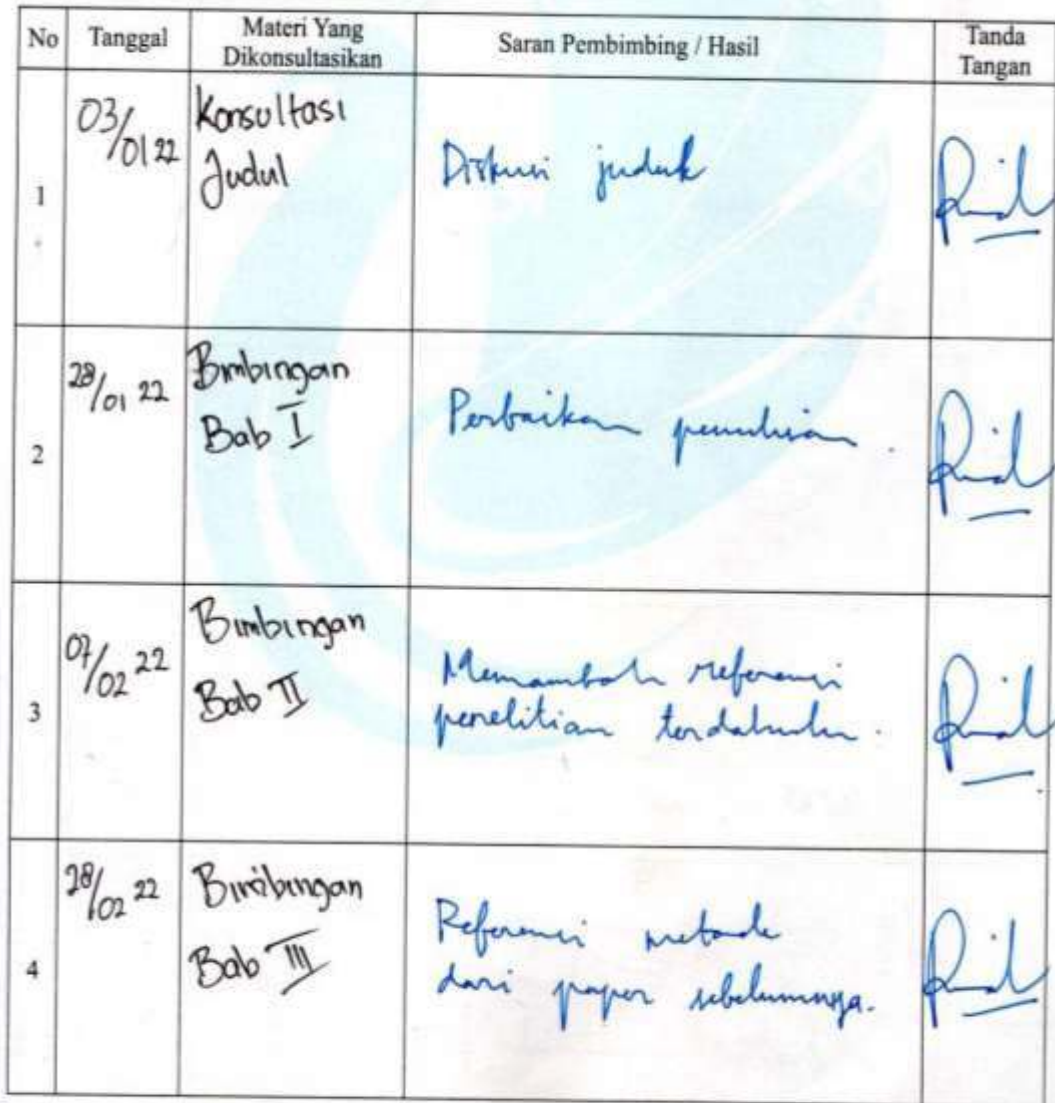 No Tanggal Materi Yang Dikonsultasikan Saran Pembimbing / Hasil Tanda Tangan
1 03/01 22 Konsultasi Judul Diskusi judul
2 28/01 22 Bimbingan Bab I Perbaikan penulisan.
3 07/02 22 Bimbingan Bab II Menambah referensi penelitian terdahulu.
4 28/02 22 Bimbingan Bab III Referensi metode dari paper sebelumnya.